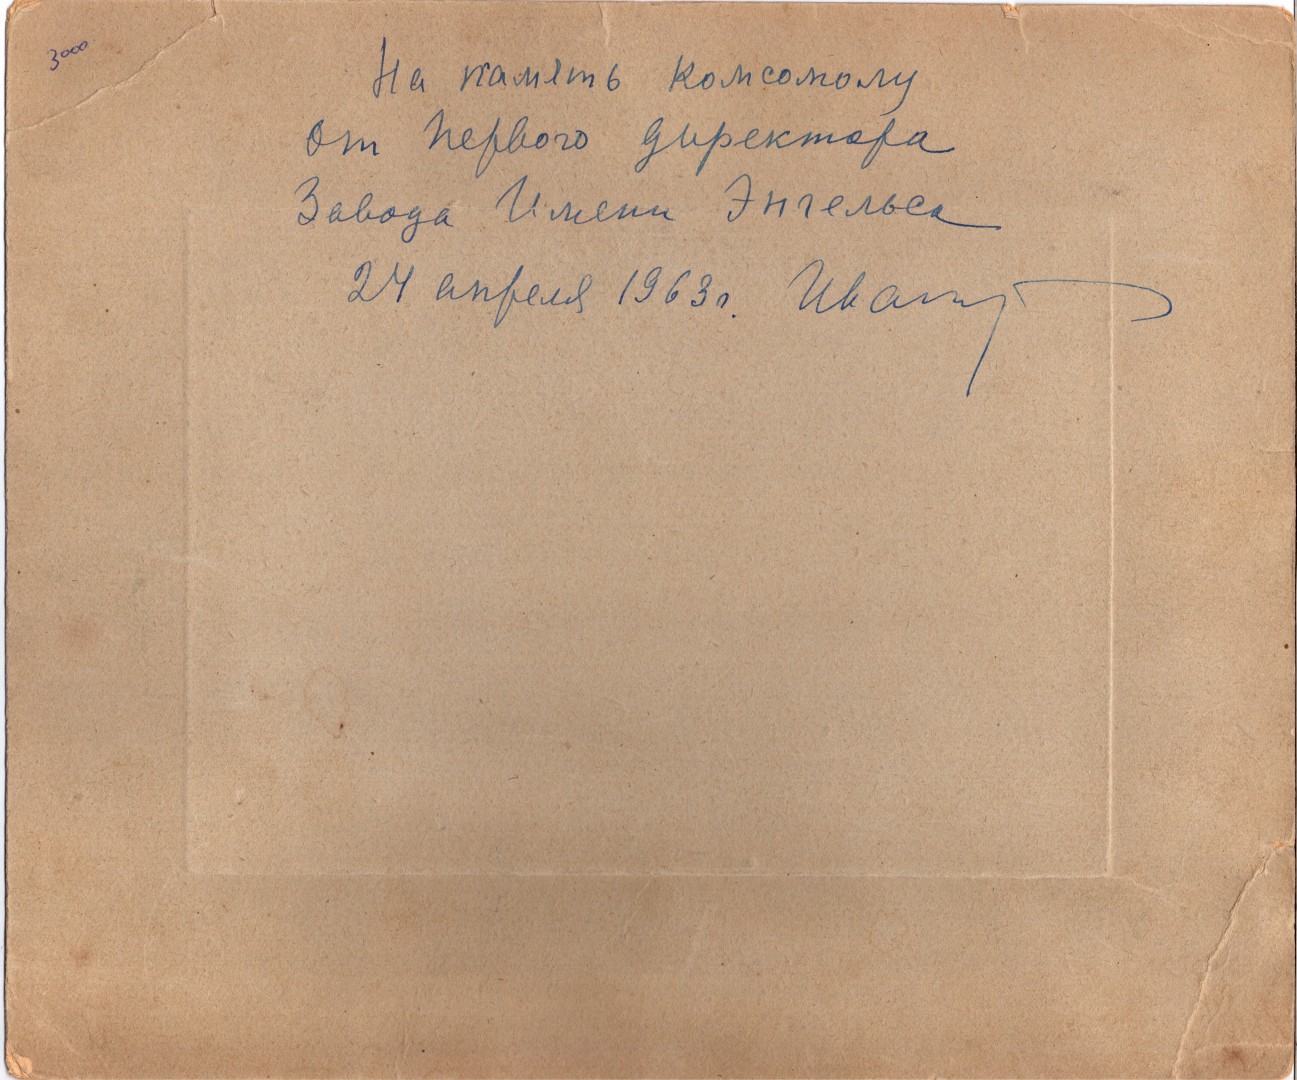 3000
На память комсомолу
от Первого директора
Завода Имени Энгельса
24 апреля 1963г.